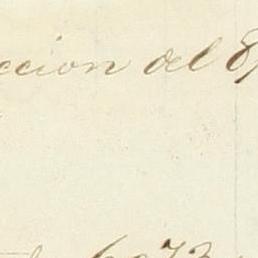 ccion del 8
6073